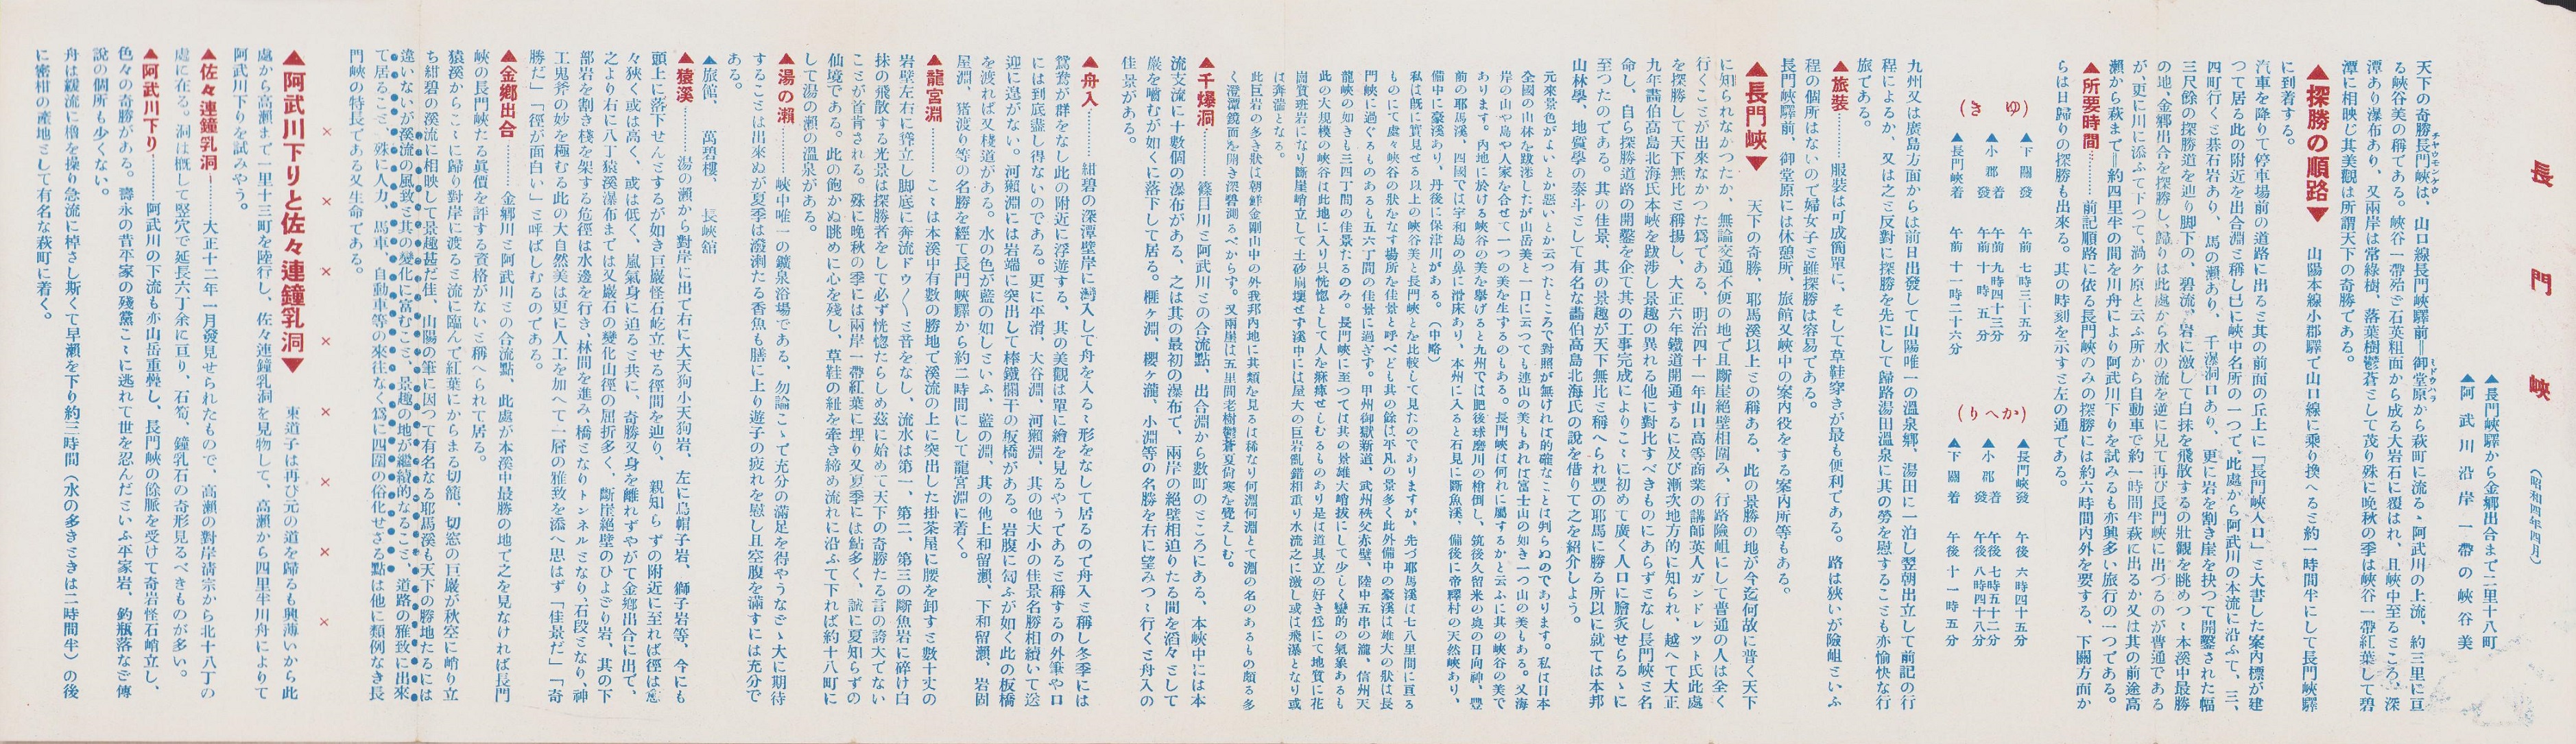 長門峽
（昭和四年四月）
▲長門峽驛から金鄕出合まで二里十八町
▲阿武川沿岸一帶の峽谷美
天下の奇勝長門峽は、山口線長門峽驛前＝御堂原から萩町に流るゝ阿武川の上流、約三里に亘
る峽谷美の稱である。峽谷一帶殆ど石英粗面から成る大岩石に覆はれ、且峽中至るところ、深
潭あり瀑布あり、又兩岸は常綠樹、落葉樹鬱蒼として茂り殊に晩秋の季は峽谷一帶紅葉して碧
潭に相映じ其美觀は所謂天下の奇勝である。
▲探勝の順路▼　山陽本線小郡驛で山口線に乘り換へると約一時間半にして長門峽驛
に到着する。
汽車を降りて停車場前の道路に出ると其の前面の丘上に「長門峽入口」と大書した案內標が建
つて居る此の附近を出合淵と稱し已に峽中名所の一つで、此處から阿武川の本流に沿ふて、三、
四町行くと碁石岩あり、馬の瀨あり、千瀑洞口あり、更に岩を割き崖を抉つて開鑿された幅
三尺餘の探勝道を辿り脚下の、碧流、岩に激して白抹を飛散するの壯觀を眺めつゝ本溪中最勝
の地、金鄕出合を探勝し、歸りは此處から水の流を逆に見て再び長門峽に出づるのが普通である
が、更に川に添ふて下つて、渦ヶ原と云ふ所から自動車で約一時間半萩に出るか又は其の前途高
瀨から萩まで＝約四里半の間を川舟により阿武川下りを試みるも亦興多い旅行の一つである。
▲所要時間………前記順路に依る長門峽のみの探勝には約六時間內外を要する、下關方面か
らは日歸りの探勝も出來る。其の時刻を示すと左の通である。
（ゆき）
▲下關發　午前七時三十五分
▲小郡着　午前九時四十三分
發　午前十時五分
▲長門峽着　午前十一時二十六分
（かへり）
▲長門峽發　午後六時四十五分
▲小郡着　午後七時五十二分
發　午後八時四十八分
▲下關着　午後十一時五分
九州又は廣島方面からは前日出發して山陽唯一の溫泉鄕、湯田に一泊し翌朝出立して前記の行
程によるか、又は之と反對に探勝を先にして歸路湯田溫泉に其の勞を慰することも亦愉快な行
旅である。
▲旅裝………服裝は可成簡單に、そして草鞋穿きが最も便利である。路は狹いが險岨といふ
程の個所はないので婦女子と雖探勝は容易である。
長門峽驛前、御堂原には休憩所、旅館又峽中の案內役をする案內所等もある。
▲長門峽▼　天下の奇勝、耶馬溪以上との稱ある、此の景勝の地が今迄何故に普く天下
に知られなかつたか、無論交通不便の地で且斷崖絕壁相圍み、行路險岨にして普通の人は全く
行くことが出來なかつた爲である、明治四十一年山口高等商業の講師英人ガントレット氏此處
を探勝して天下無比と稱揚し、大正六年鐵道開通するに及び漸次地方的に知られ、越へて大正
九年畵伯高島北海氏本峽を跋涉し景趣の異れる他に對比すべきものにあらずとなし長門峽と名
命し、自ら探勝道路の開鑿を企て其の工事完成によりこゝに初めて廣く人口に膾炙せらるゝに
至つたのである。其の佳景、其の景趣が天下無比と稱へられ豐の耶馬に勝る所以に就ては本邦
山林學、地質學の泰斗として有名な畵伯高島北海氏の說を借りて之を紹介しよう。
元來景色がよいとか惡いとか云つたところで對照が無ければ的確なことは判らぬのであります。私は日本
全國の山林を跋涉したが山岳美と一口に云つても連山の美もあれば富士山の如き一つ山の美もある。又海
岸の山や島や人家を合せて一つの美を生ずるのもある。長門峽は何れに屬するかと云ふに其の峽谷の美で
あります。內地に於ける峽谷の美を擧げると九州では肥後球磨川の槍倒し、筑後久留米の奧の日向神、豐
前の耶馬溪、四國では宇和島の鼻に滑床あり、本州に入ると石見に斷魚溪、備後に帝釋村の天然峽あり、
備中に豪溪あり、丹後に保津川がある。（中略）
私は旣に實見せる以上の峽谷美と長門峽とを比較して見たのでありますが、先づ耶馬溪は七八里間に亘る
ものにて處々峽谷の狀をなす場所を佳景と呼べども其の餘は平凡の景多く此外備中の豪溪は雄大の狀は長
門峽に過ぐるものあるも五六丁間の佳景に過ぎず。甲州御嶽新道、武州秩父赤壁、陸中五串の瀧、信州天
龍峽の如きも三四丁間の佳景たるのみ。長門峽に至つては其の景雄大峭拔にして少しく蠻的の氣象あるも
此の大規模の峽谷は此地に入り只恍惚として人を麻痺せしむるものあり是は道具立の好き爲にて地質に花
崗質斑岩になり斷崖峭立して土砂崩壞せず溪中には屋大の巨岩亂錯相重り水流之に激し或は飛瀑となり或
は奔湍となる。
此巨岩の多き狀は朝鮮金剛山中の外我邦內地に其類を見るは稀なり何淵何淵とて淵の名のあるもの頗る多
く澄潭鏡面を開き深碧測るべからず。又兩崖は五里間老樹鬱蒼夏尙寒を覺えしむ。
▲千爆洞………篠目川と阿武川との合流點、出合淵から數町のところにある、本峽中には本
流支流に十數個の瀑布がある、之は其の最初の瀑布で、兩岸の絕壁相迫りたる間を滔々として
巖を嚙むが如くに落下して居る。榧ヶ淵、櫻ヶ瀧、小淵等の名勝を右に望みつゝ行くと舟入の
佳景がある。
▲舟入………紺碧の深潭壁岸に灣入して舟を入るゝ形をなして居るので舟入と稱し冬季には
鴛鴦が群をなし此の附近に浮遊する、其の美觀は單に繪を見るやうであると稱するの外筆や口
には到底盡し得ないのである。更に平滑、大谷淵、河獺淵、其の他大小の佳景名勝相續いて送
迎に遑がない。河獺淵には岩端に突出して棒鐵欄干の板橋がある。岩腹に匐ふが如く此の板橋
を渡れば又棧道がある。水の色が藍の如しといふ、藍の淵、其の他上和留瀨、下和留瀨、岩固
屋淵、猪渡り等の名勝を經て長門峽驛から約二時間にして龍宮淵に着く。
▲龍宮淵………こゝは本溪中有數の勝地で溪流の上に突出した掛茶屋に腰を卸すと數十丈の
岩壁左右に聳立し脚底に奔流ドゥ〱と音をなし、流水は第一、第二、第三の斷魚岩に碎け白
抹の飛散する光景は探勝者をして必ず恍惚たらしめ茲に始めて天下の奇勝たる言の誇大でない
ことが首肯される。殊に晩秋の季には兩岸一帶紅葉に埋り又夏季には鮎多く、誠に夏知らずの
仙境である。此の飽かぬ眺めに心を殘し、草鞋の紐を牽き締め流れに沿ふて下れば約十八町に
して湯の瀨の溫泉がある。
▲湯の瀨………峽中唯一の鑛泉浴場である、勿論こゝで充分の滿足を得やうなどゝ大に期待
することは出來ぬが夏季は潑剌たる香魚も膳に上り遊子の疲れを慰し且空腹を滿すには充分で
ある。
▲旅館、　萬碧樓、　長峽舘
▲猿溪………湯の瀨から對岸に出で右に大天狗小天狗岩、左に烏帽子岩、獅子岩等、今にも
頭上に落下せんとするが如き巨巖怪石屹立せる徑間を辿り、親知らずの附近に至れば徑は愈
々狹く或は高く、或は低く、嵐氣身に迫ると共に、奇勝又身を離れずやがて金鄕出合に出で、
之より右に八丁猿溪瀑布までは又巖石の變化山徑の屈折多く、斷崖絕壁のひよどり岩、其の下
部岩を割き棧を架する危徑は水邊を行き、林間を進み、橋となりトンネルとなり、石段となり、神
工鬼斧の妙を極むる此の大自然美は更に人工を加へて一層の雅致を添へ思はず「佳景だ」「奇
勝だ」「徑が面白い」と呼ばしむるのである。
▲金鄕出合………金鄕川と阿武川との合流點、此處が本溪中最勝の地で之を見なければ長門
峽の長門峽たる眞價を評する資格がないと稱へられて居る。
猿溪からこゝに歸り對岸に渡ると流に臨んで紅葉にからまる切籠、切窓の巨巖が秋空に峭り立
ち紺碧の溪流に相映して景趣甚だ佳、山陽の筆に因つて有名なる耶馬溪も天下の勝地たるには
違いないが溪流の風致と其の變化に富むこと、景趣の地が繼續的なること、道路の雅致に出來
て居ること、殊に人力、馬車、自動車等の來往なく爲に四圍の俗化せざる點は他に類例なき長
門峽の特長である又生命である。
×　×　×　×　×　×　×　×
▲阿武川下りと佐々連鐘乳洞▼　東道子は再び元の道を歸るも興薄いから此
處から高瀨まで一里十三町を陸行し、佐々連鐘乳洞を見物して、高瀨から四里半川舟によりて
阿武川下りを試みやう。
▲佐々連鐘乳洞………大正十二年一月發見せられたもので、高瀨の對岸淸宗から北十八丁の
處に在る。洞は槪して竪穴で延長六丁余に亘り、石筍、鐘乳石の奇形見るべきものが多い。
▲阿武川下り………阿武川の下流も亦山岳重疊し、長門峽の餘脈を受けて奇岩怪石峭立し、
色々の奇勝がある。壽永の昔平家の殘黨こゝに逃れて世を忍んだといふ平家岩、釣瓶落など傳
說の個所も少くない。
舟は緩流に櫓を操り急流に棹さし斯くて早瀨を下り約三時間（水の多きときは二時間半）の後
に密柑の產地として有名な萩町に着く。